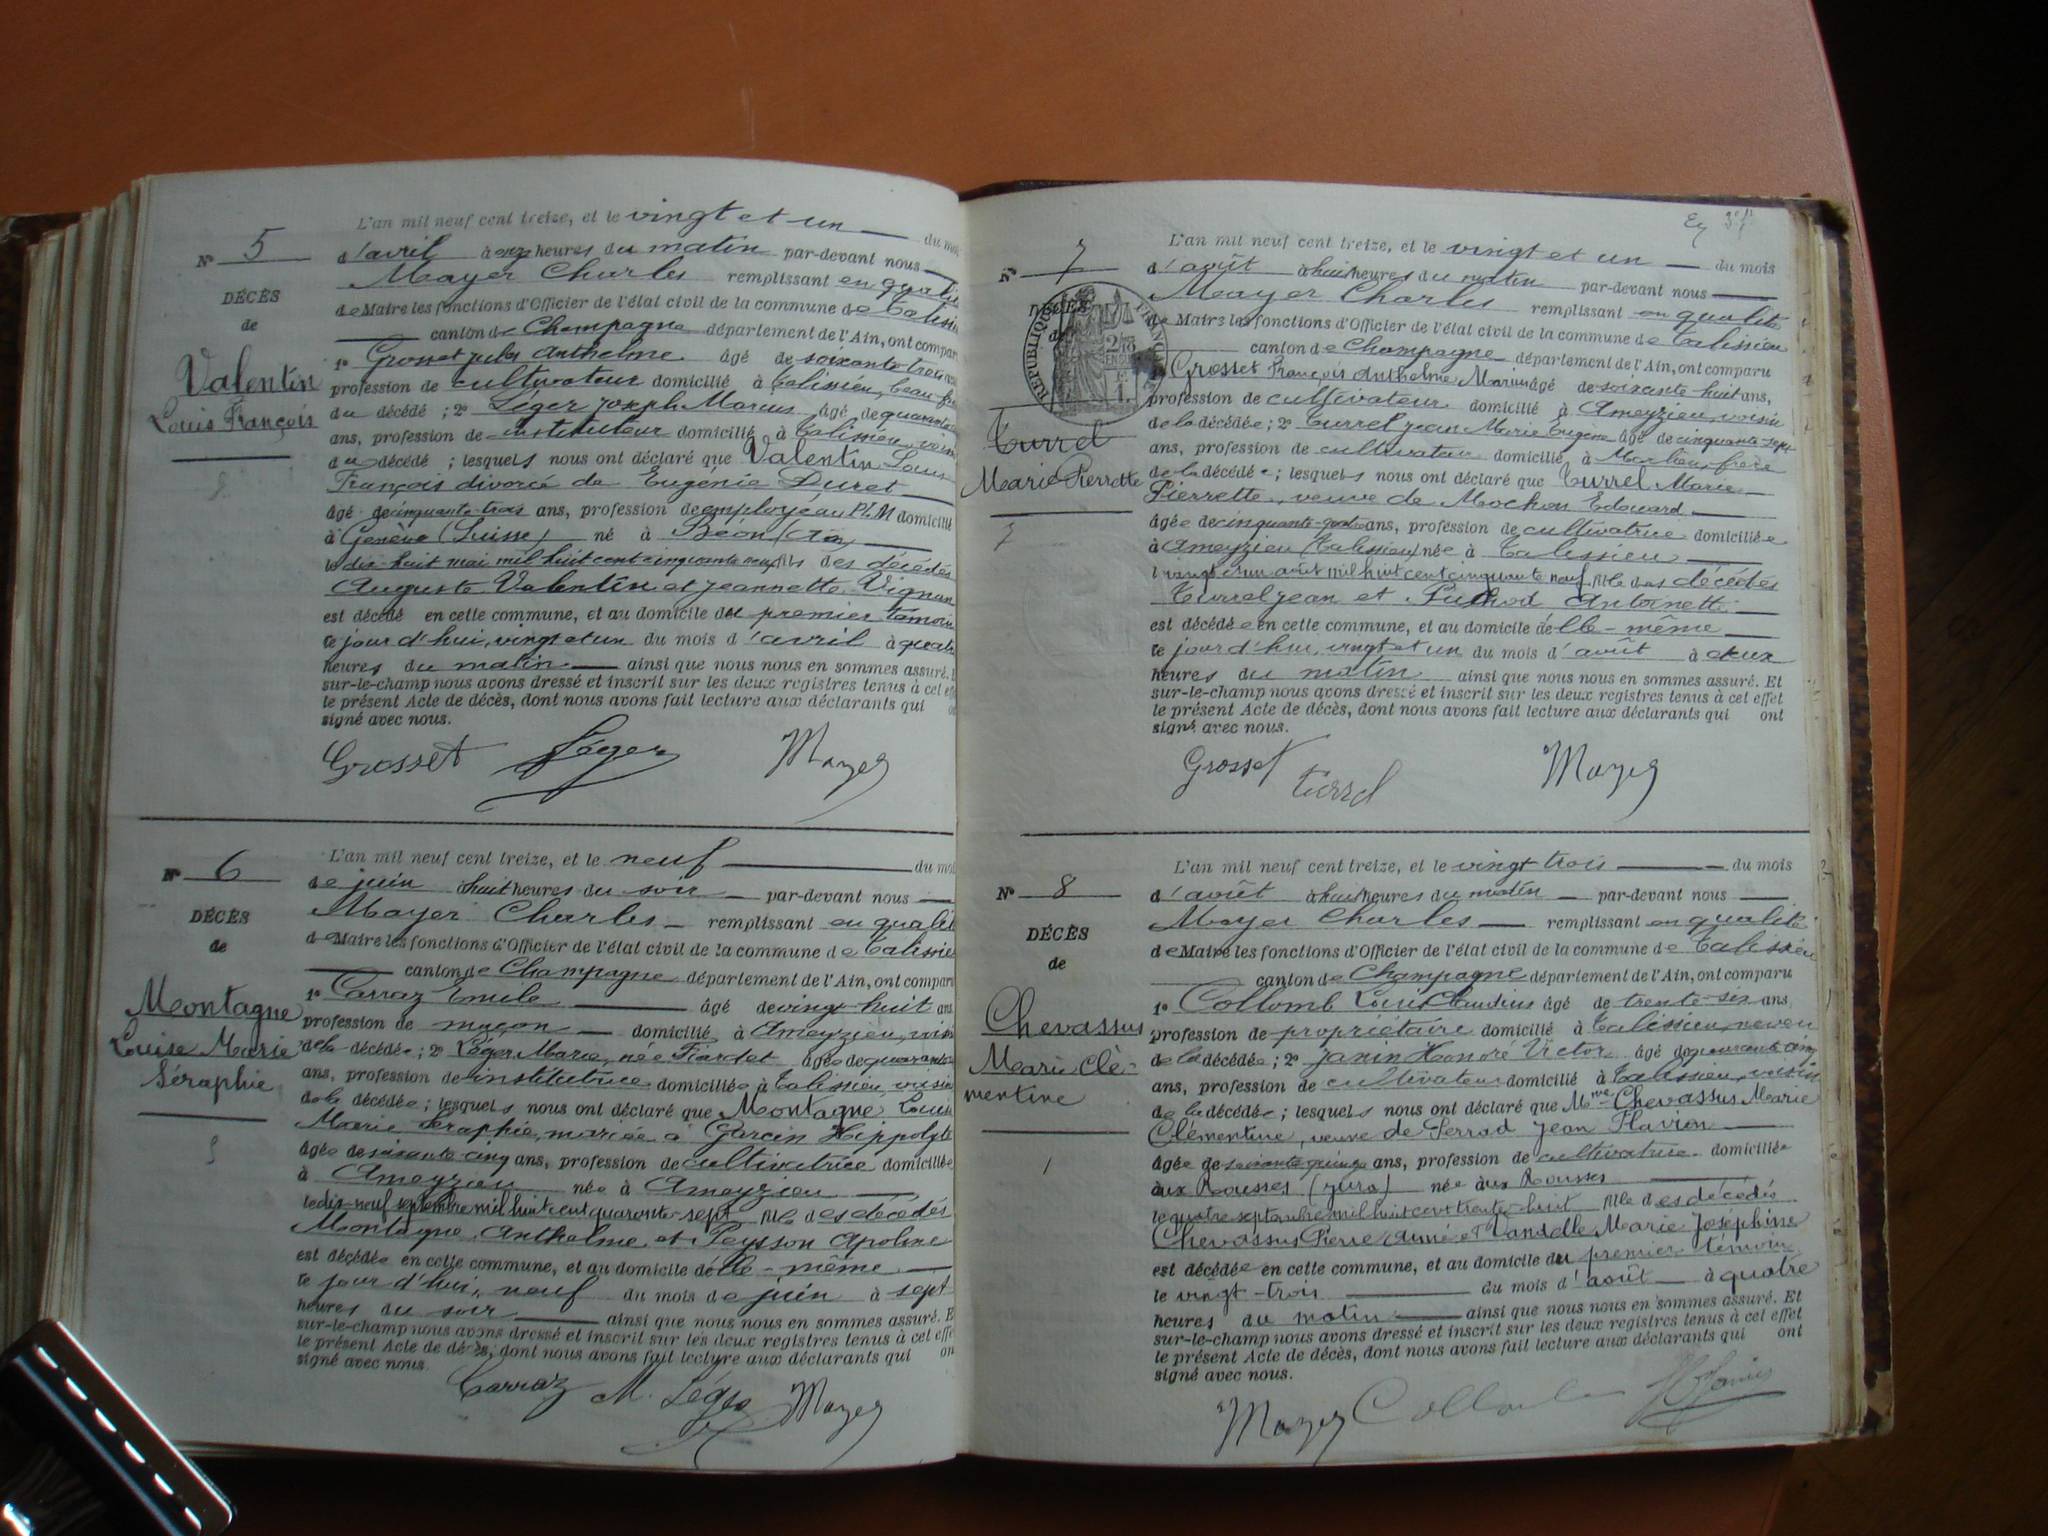 L'an mil neuf cent treize, et le vingt et un du mois
N° 5 d'avril à onze heures du matin par-devant nous
DÉCÈS
de
Valentin
Louis François
Mayer Charles remplissant en qualité
de Maire les fonctions d'Officier de l'état civil de la commune de Talissieu
canton de Champagne département de l'Ain, ont comparu
1° Grosset Jules Anthelme âgé de soixante trois
profession de cultivateur domicilié à Talissieu, beau
du décédé ; 2° Léger Joseph Marcus âgé de quarante
ans, profession de instituteur domicilié à Talissieu, voisin
du décédé ; lesquels nous ont déclaré que Valentin Louis
François divorcé de Eugénie Duret
âgé de cinquante-trois ans, profession de employé au P.L.M domicilié
à Genève (Suisse) né à Béon (Ain)
le dix-huit mai mil huit cent cinquante neuf fils des décédés
Auguste Valentin et Jeannette Vignan
est décédé en cette commune, et au domicile du premier témoin
ce jour d'hui, vingt et un du mois d'avril à quatre
heures du matin ainsi que nous nous en sommes assuré.
sur-le-champ nous avons dressé et inscrit sur les deux registres tenus à cet
le présent Acte de décès, dont nous avons fait lecture aux déclarants qui
signé avec nous.
Grosset Léger Mayer
L'an mil neuf cent treize, et le neuf du mois
N° 6 de juin à huit heures du soir par-devant nous
DÉCÈS
de
Montagne
Louise Marie
Séraphie
Mayer Charles remplissant en qualité
de Maire les fonctions d'Officier de l'état civil de la commune de Talissieu
canton de Champagne département de l'Ain, ont comparu
1° Carraz Emile âgé de vingt-huit ans
profession de maçon domicilié à Ameyzieu, voisin
de la décédée ; 2° Léger Marie, née Fiardet âgée de quarante
ans, profession de institutrice domiciliée à Talissieu, voisine
de la décédée ; lesquels nous ont déclaré que Montagne Louise
Marie Séraphie, mariée à Garcin Hippolyte
âgée de soixante-cinq ans, profession de cultivatrice domiciliée
à Ameyzieu née à Ameyzieu
le dix-neuf septembre mil huit cent quarante-sept fille des décédés
Montagne Anthelme et Peysson Apoline
est décédée en cette commune, et au domicile d'elle-même
ce jour d'hui, neuf du mois de juin à sept
heures du soir ainsi que nous nous en sommes assuré. E
sur-le-champ nous avons dressé et inscrit sur les deux registres tenus à cet
le présent Acte de décès, dont nous avons fait lecture aux déclarants qui
signé avec nous.
Carraz M. Léger Mayer
37
L'an mil neuf cent treize, et le vingt et un du mois
N° 7 d'août à huit heures du matin par-devant nous
DÉCÈS
de
RÉPUBLIQUE FRANÇAISE
Turrel
Marie Pierrette
7
Mayer Charles remplissant en qualité
de Maire les fonctions d'Officier de l'état civil de la commune de Talissieu
canton de Champagne département de l'Ain, ont comparu
1° Grosset François Anthelme Marin âgé de soixante huit ans,
profession de cultivateur domicilié à Ameyzieu, voisin
de la décédée ; 2° Turrel Jean Marie Eugène âgé de cinquante-sept
ans, profession de cultivateur domicilié à Marlieu, frère
de la décédée ; lesquels nous ont déclaré que Turrel Marie
Pierrette, veuve de Mochon Edouard
âgée de cinquante-quatre ans, profession de cultivatrice domiciliée
à Ameyzieu (Talissieu) née à Talissieu
le vingt et un août mil huit cent cinquante neuf fille des décédés
Turrel Jean et Puthod Antoinette
est décédée en cette commune, et au domicile d'elle-même
ce jour d'hui, vingt et un du mois d'août à deux
heures du matin ainsi que nous nous en sommes assuré. Et
sur-le-champ nous avons dressé et inscrit sur les deux registres tenus à cet effet
le présent Acte de décès, dont nous avons fait lecture aux déclarants qui ont
signé avec nous.
Grosset Turrel Mayer
L'an mil neuf cent treize, et le vingt-trois du mois
N° 8 d'août à huit heures du matin par-devant nous
DÉCÈS
de
Chevassus
Marie Clé-
mentine
1
Mayer Charles remplissant en qualité
de Maire les fonctions d'Officier de l'état civil de la commune de Talissieu
canton de Champagne département de l'Ain, ont comparu
1° Collomb Louis Claudius âgé de trente-six ans,
profession de propriétaire domicilié à Talissieu, neveu
de la décédée ; 2° Janin Honoré Victor âgé de quarante cinq
ans, profession de cultivateur domicilié à Talissieu, voisin
de la décédée ; lesquels nous ont déclaré que Mme Chevassus Marie
Clémentine, veuve de Perrad Jean Flavien
âgée de soixante quinze ans, profession de cultivatrice domiciliée
aux Rousses (Jura) née aux Rousses
le quatre septembre mil huit cent trente-huit fille des décédés
Chevassus Pierre Aimé et Vandelle Marie Joséphine
est décédée en cette commune, et au domicile du premier témoin
le vingt-trois du mois d'août à quatre
heures du matin ainsi que nous nous en sommes assuré. Et
sur-le-champ nous avons dressé et inscrit sur les deux registres tenus à cet effet
le présent Acte de décès, dont nous avons fait lecture aux déclarants qui ont
signé avec nous.
Mayer Collomb H Janin